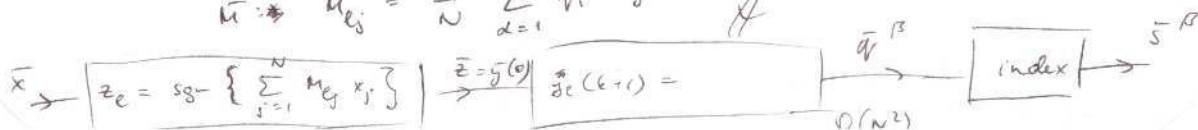 M : M_{ej} = 1/N Σ_{α=1}
x̄ → z_e = sgn { Σ_{j=1}^{N} M_{ej} x_j } z̄ = ȳ(0) y_e (k+1) = q̄^β index s̄^β
O(N²)